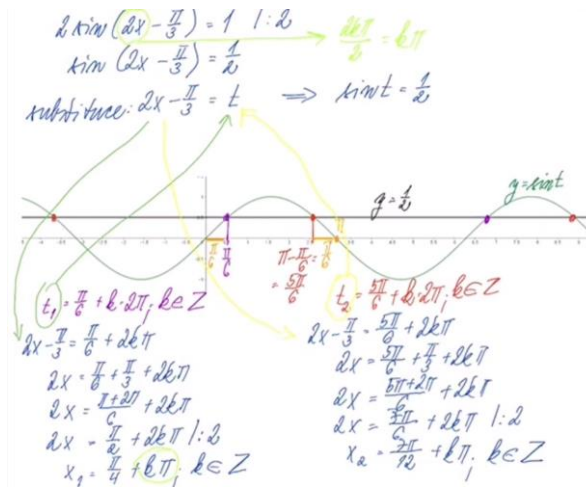 2 sin (2x - π/3) = 1 /:2
2kπ/2 = kπ
sin (2x - π/3) = 1/2
substituce: 2x - π/3 = t ⟹ sin t = 1/2
y = 1/2
y = sin t
π/6
π/6
π - π/6 =
= 5π/6
π/6
π
t₁ = π/6 + k·2π; k∈Z
2x - π/3 = π/6 + 2kπ
2x = π/6 + π/3 + 2kπ
2x = π+2π/6 + 2kπ
2x = π/2 + 2kπ /:2
x₁ = π/4 + kπ; k∈Z
t₂ = 5π/6 + k·2π; k∈Z
2x - π/3 = 5π/6 + 2kπ
2x = 5π/6 + π/3 + 2kπ
2x = 5π+2π/6 + 2kπ
2x = 7π/6 + 2kπ /:2
x₂ = 7π/12 + kπ; k∈Z